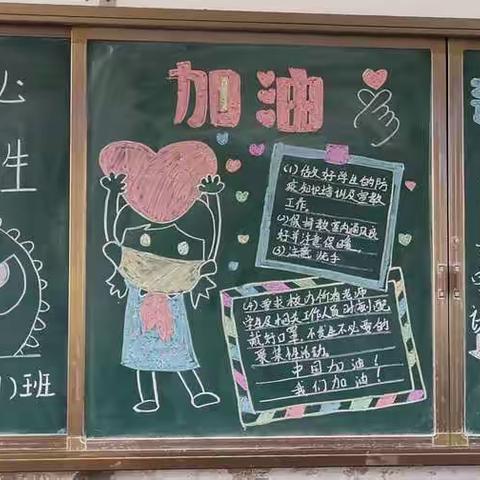 加油
(1)做好学生的防
疫知识培训及宣教
工作.
(2)保持教室内通风良
好并注意保暖
(3)注意洗手
(4)要求校办所有老师
学生及相关工作人员时刻配
戴好口罩,不去不必要的
聚集性活动.
中国加油!
我们加油!
必
生
1)班